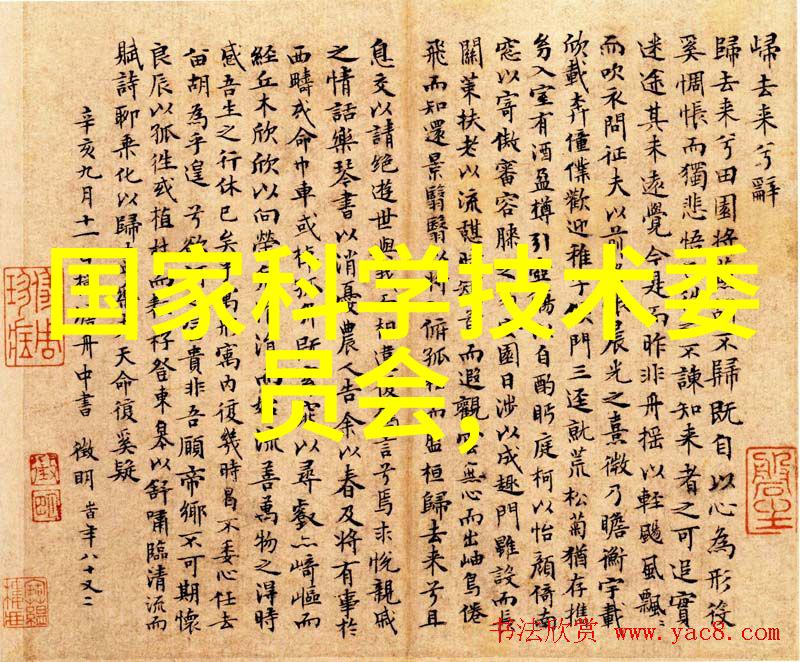 歸去来兮辭
歸去来兮田園將不歸既自以心為形役
奚惆悵而獨悲悟不諫知来者之可追實
迷途其未遠覺今是而昨非舟摇以輕颺風飄〻
而吹衣問征夫以前晨光之熹微乃瞻衡宇載
欣載奔僮僕歡迎稚子候門三逕就荒松菊猶存携
幼入室有酒盈樽引壺觴以自酌眄庭柯以怡顏倚南
窓以寄傲審容膝之園日涉以成趣門雖設而長
關策扶老以流憩時矯首而遐觀雲無心而出岫鳥倦
飛而知還景翳翳以將孤而盤桓歸去来兮且
息交以請絕遊世與我而相違復言兮焉求悅親戚
之情話樂琴書以消憂農人告余以春及將有事於
西疇或命巾車或棹舟既窈以尋壑亦崎嶇而
經丘木欣欣以向榮泉涓而始流善萬物之得時
感吾生之行休已矣乎寓形寓内復幾時曷不委心任去
留胡為乎遑〻兮欲何富貴非吾願帝鄉不可期懷
良辰以孤往或植杖而耘耔登東皋以舒嘯臨清流而
賦詩聊乘化以歸樂夫天命復奚疑
辛亥九月十一日舟中書 徵明 時年八十又二
国家科学技术委
员会,
书法欣赏 www.yac8.com